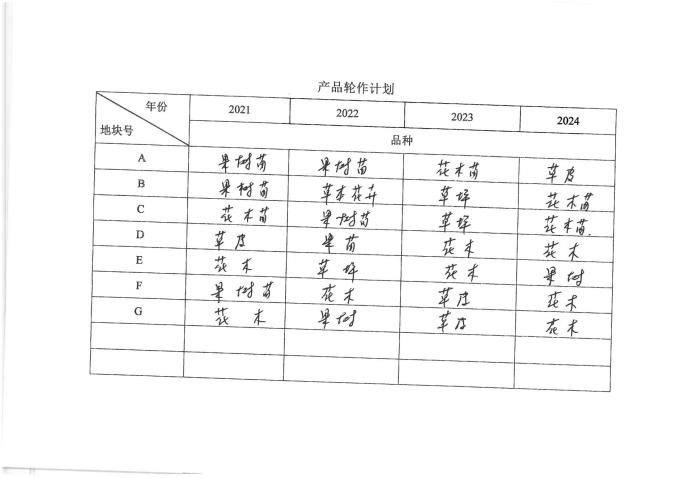 产品轮作计划
年份 2021 2022 2023 2024
地块号 品种
A 果树苗 果树苗 花木苗 草皮
B 果树苗 草本花卉 草坪 花木苗
C 花木苗 果树苗 草坪 花木苗.
D 草皮 果苗 花木 花木
E 花木 草坪 花木 果树
F 果树苗 花木 草皮 花木
G 花木 果树 草皮 花木